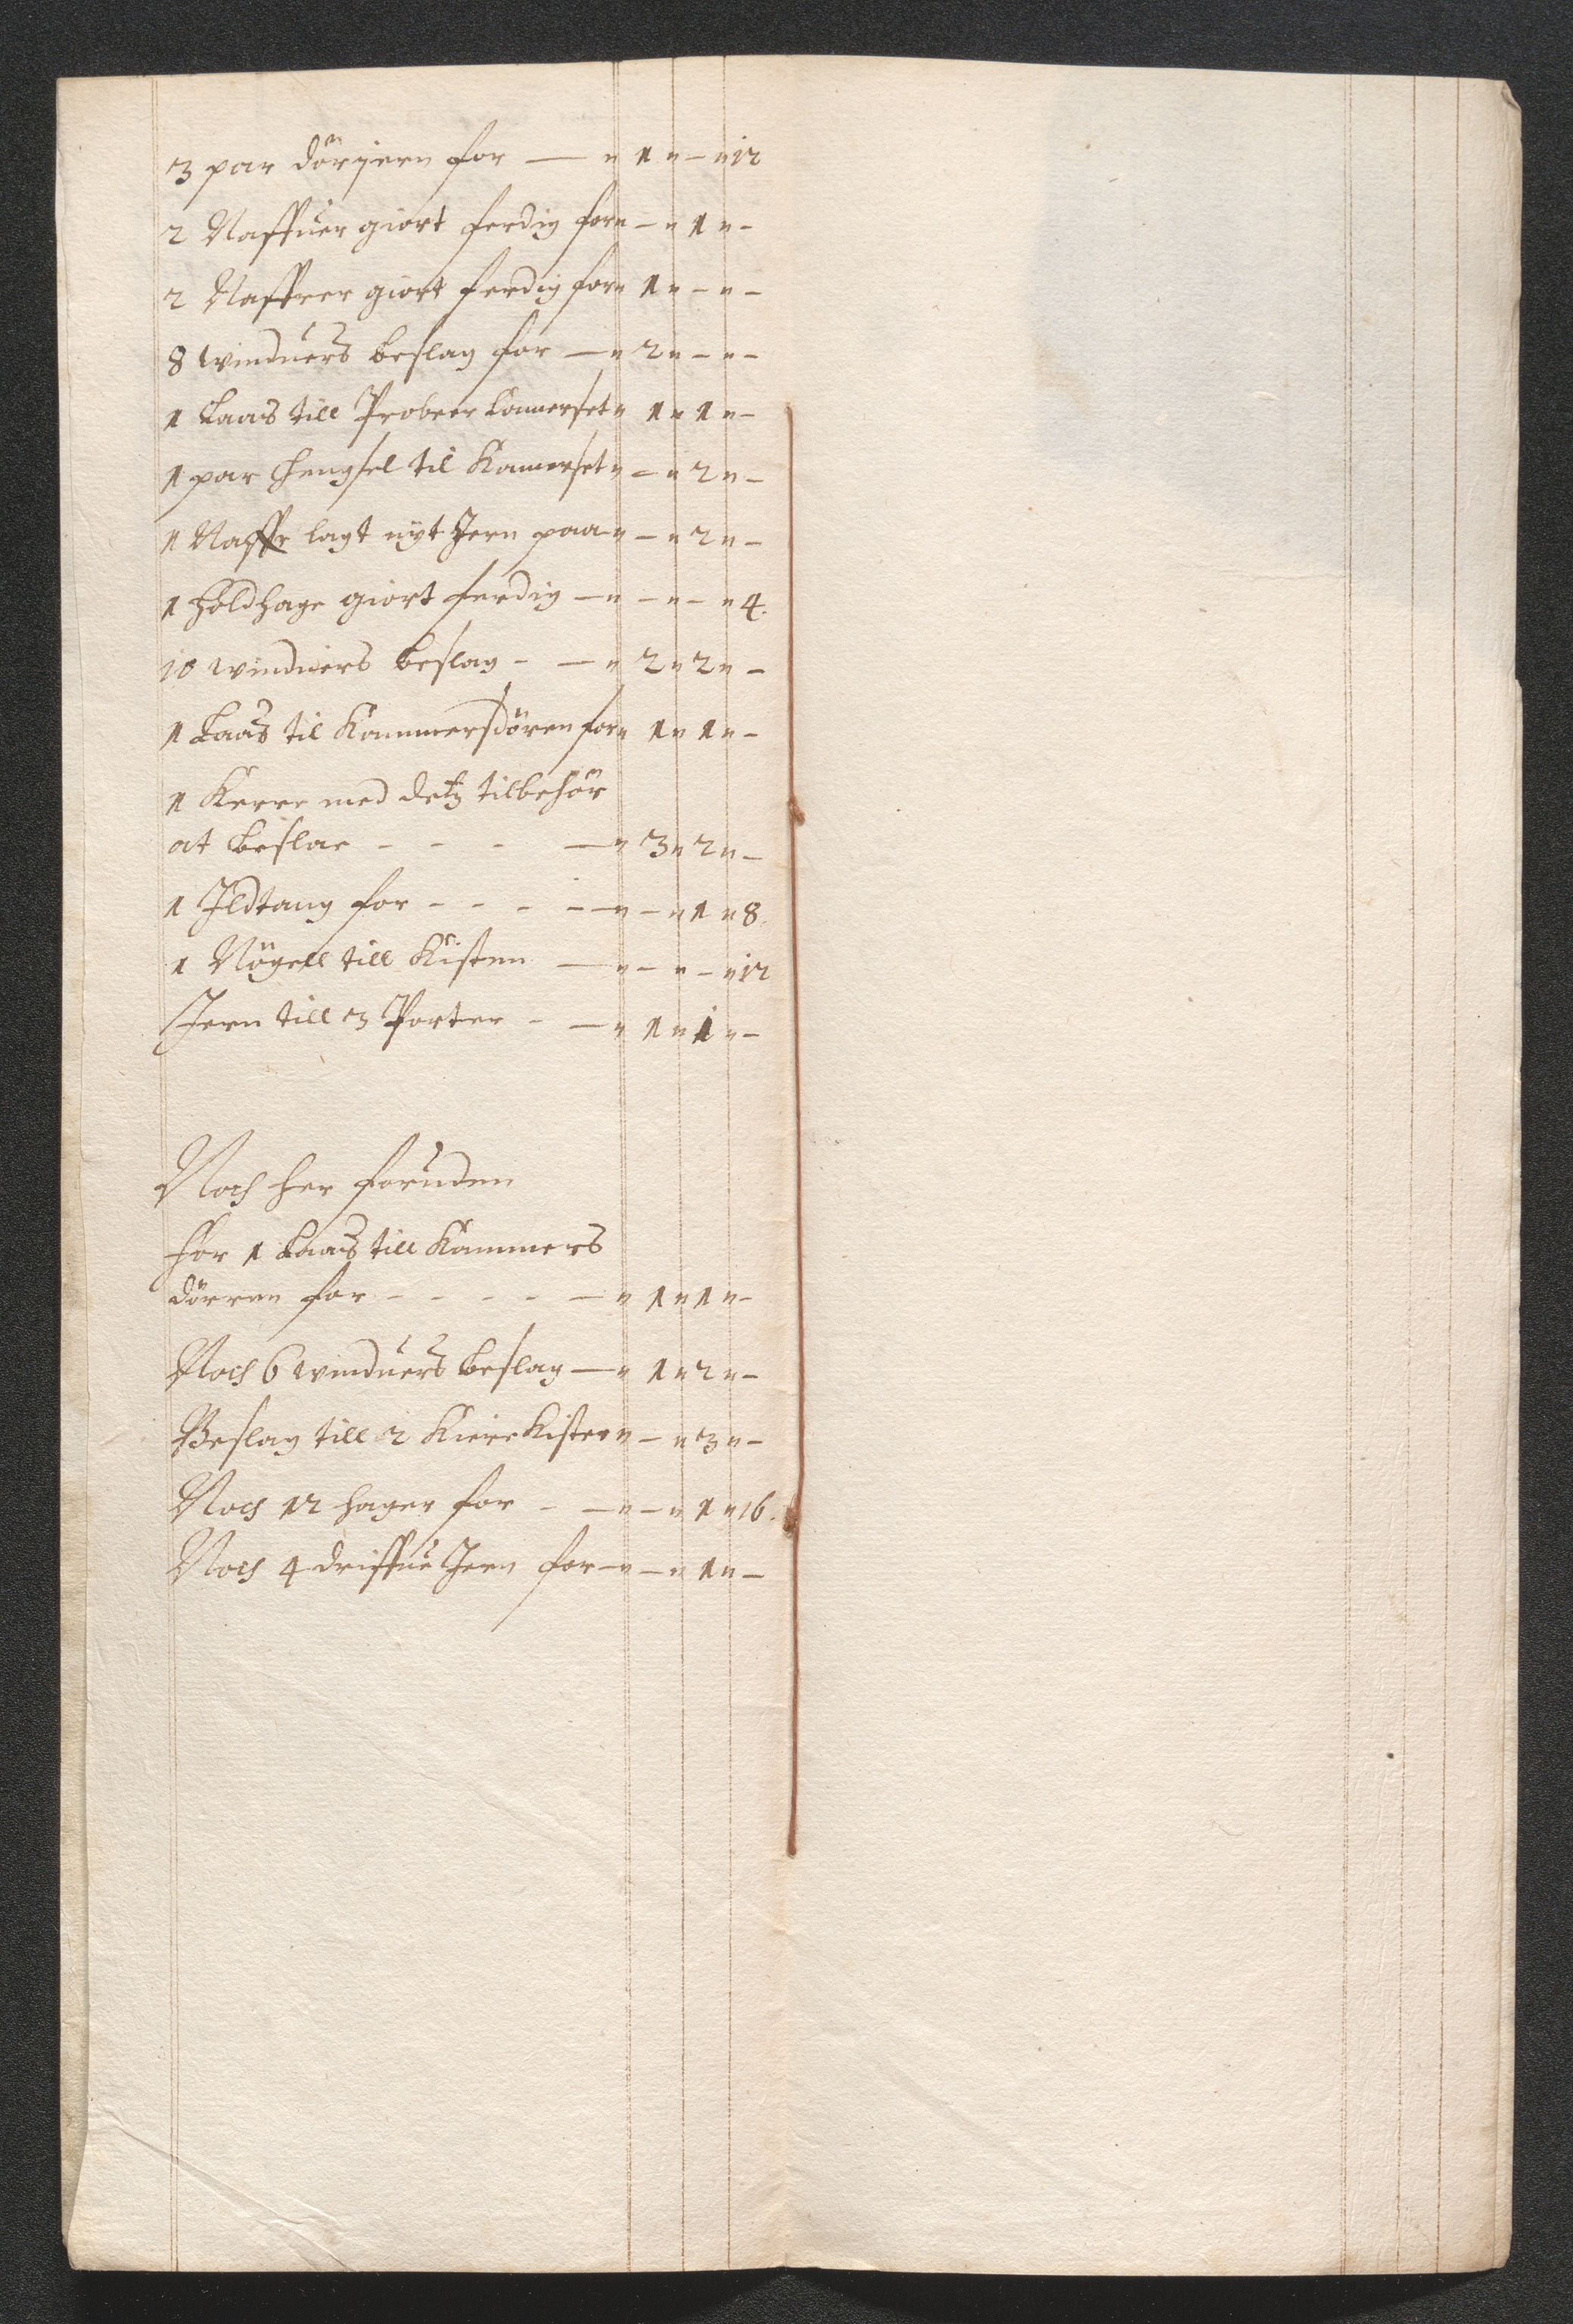 3 par dörjern for — „ 1 „ – „ 12
2 Naffuer giort ferdig for „ – „ 1 „ –
2 Naffrer giort ferdig for „ 1 „ – „ –
8 winduers beslag for — „ 2 „ – „ –
1 Laas till Probeer Kamerset „ 1 „ 1 „ –
1 par Hengsel til Kamerset „ – „ 2 „ –
1 Naffr lagt nyt Jern paa „ – „ 2 „ –
1 Holdhage giort ferdig — „ – „ – „ 4.
10 winduers beslag – — „ 2 „ 2 „ –
1 Laas til Kammersdören for „ 1 „ 1 „ –
1 Kerre med detz tilbehör
at beslae – – – — „ 3 „ 2 „ –
1 Ildtang for – – – — „ – „ 1 „ 8.
1 Nögell till Kisten — „ – „ – „ 12
Jern till 3 Porter – — „ 1 „ 1 „ –
Noch her foruden
for 1 Laas till Kammers
dörren for – – – – — „ 1 „ 1 „ –
Noch 6 winduers beslag — „ 1 „ 2 „ –
Beslag till 2 Kiere Kister „ – „ 3 „ –
Noch 12 hager for – — „ – „ 1 „ 16.
Noch 4 driffue Jern for — „ – „ 1 „ –